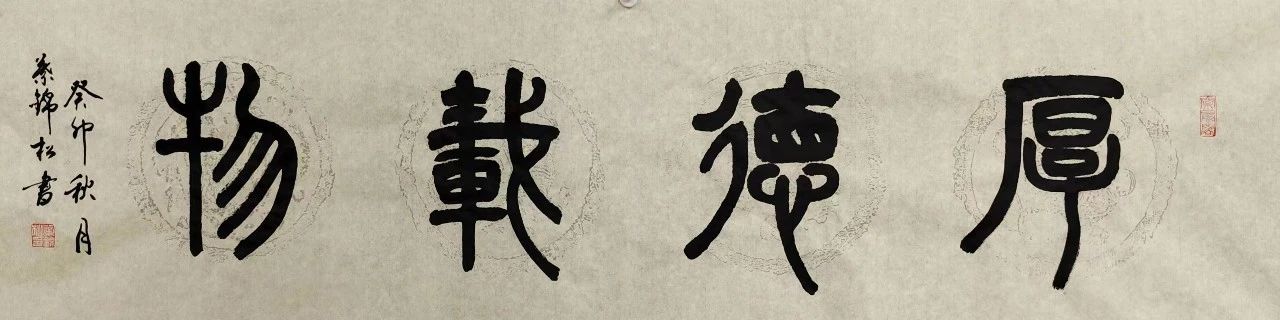 厚德載物
癸卯秋月
蔡錦松書